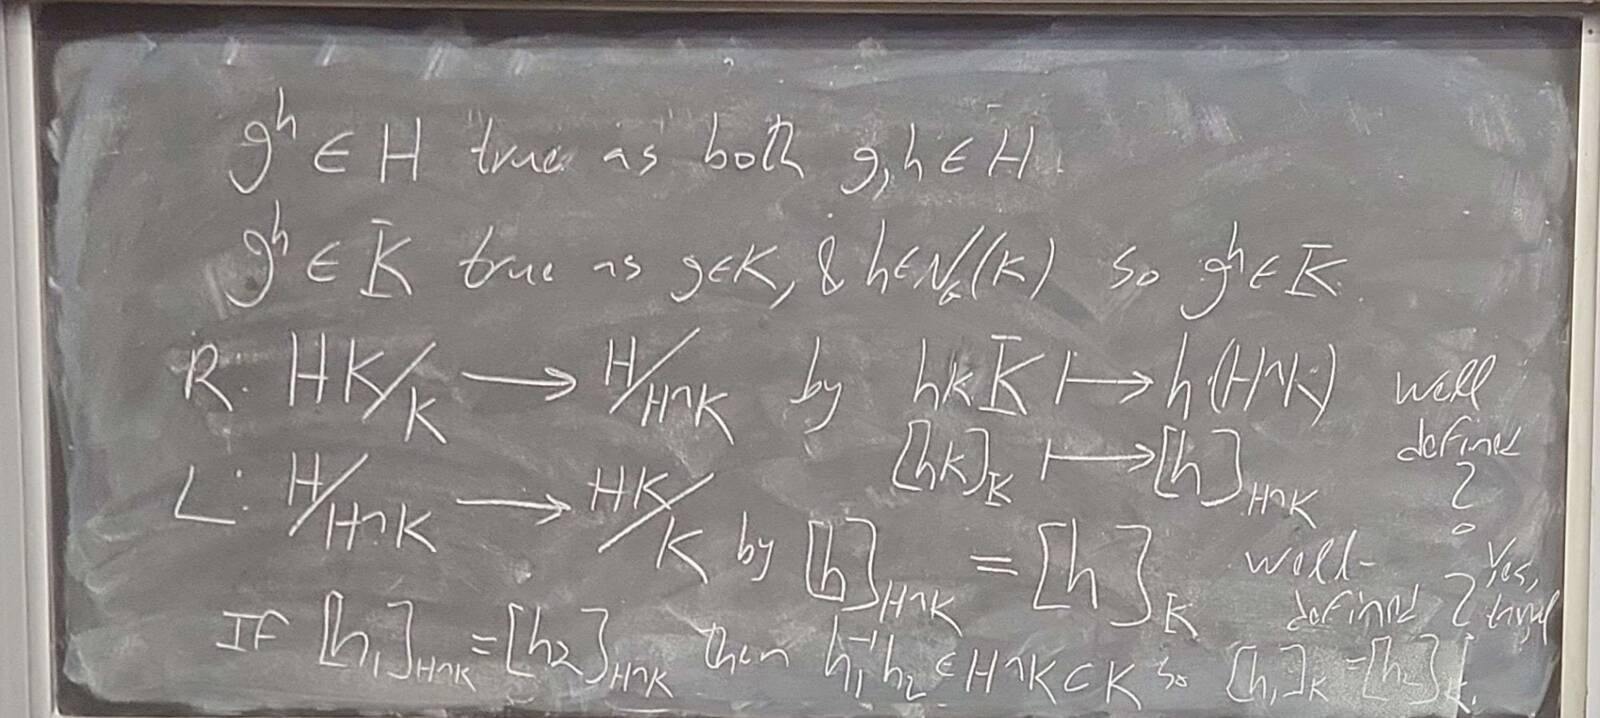 gʰ ∈ H true as both g, h ∈ H.
gʰ ∈ K true as g∈K, & h∈N_G(K) so gʰ ∈ K.
R: HK/K ⟶ H/H∩K by hkK ⟼ h(H∩K) well defined ?
[hk]_K ⟼ [h]_{H∩K}
L: H/H∩K ⟶ HK/K by [h]_{H∩K} = [h]_K well-defined ? Yes,
If [h₁]_{H∩K} = [h₂]_{H∩K} then h₁⁻¹h₂ ∈ H∩K ⊂ K so [h₁]_K = [h₂]_K.